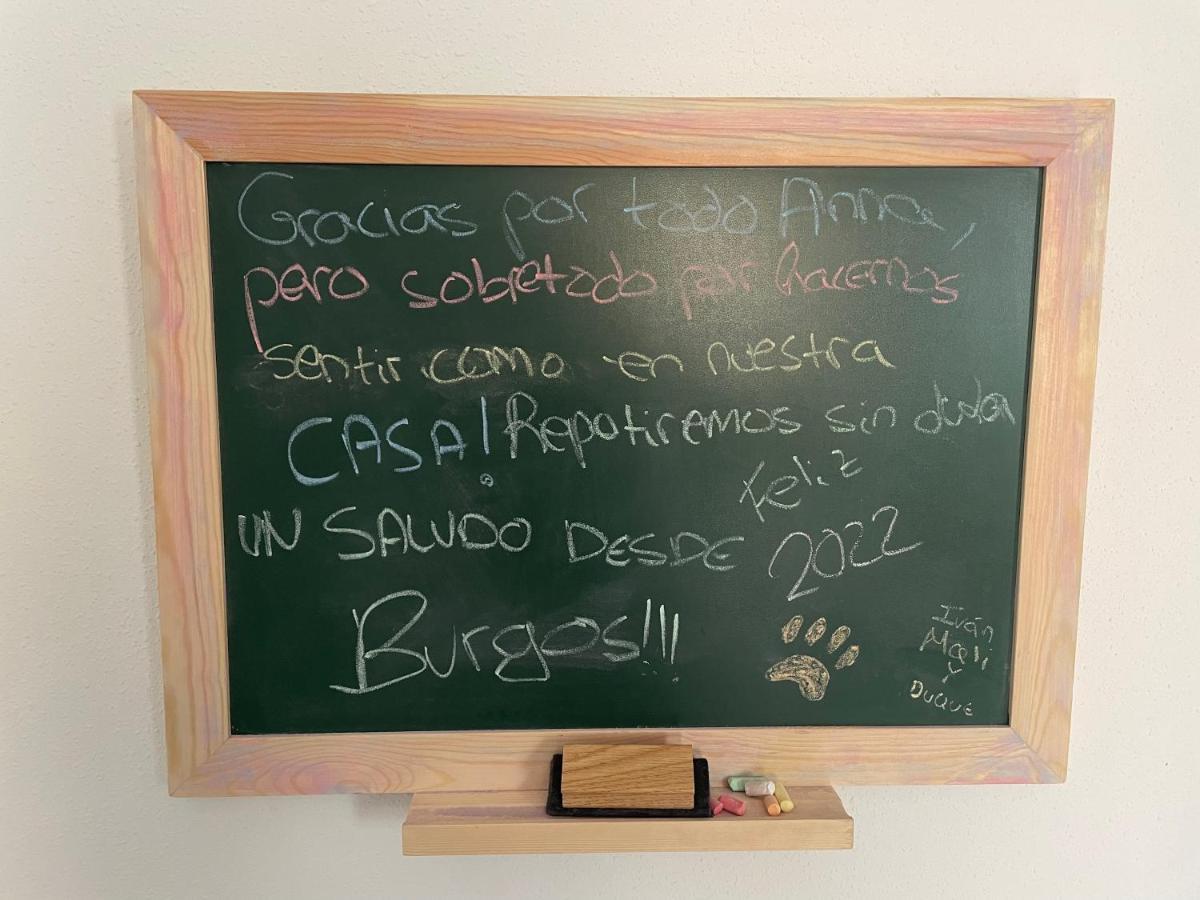 Gracias por todo Anna,
pero sobretodo por hacernos
sentir como en nuestra
CASA! Repatiremos sin duda
UN SALUDO DESDE
Burgos!!!
Feliz
2022
Iván
Magli
Y
DUQUE